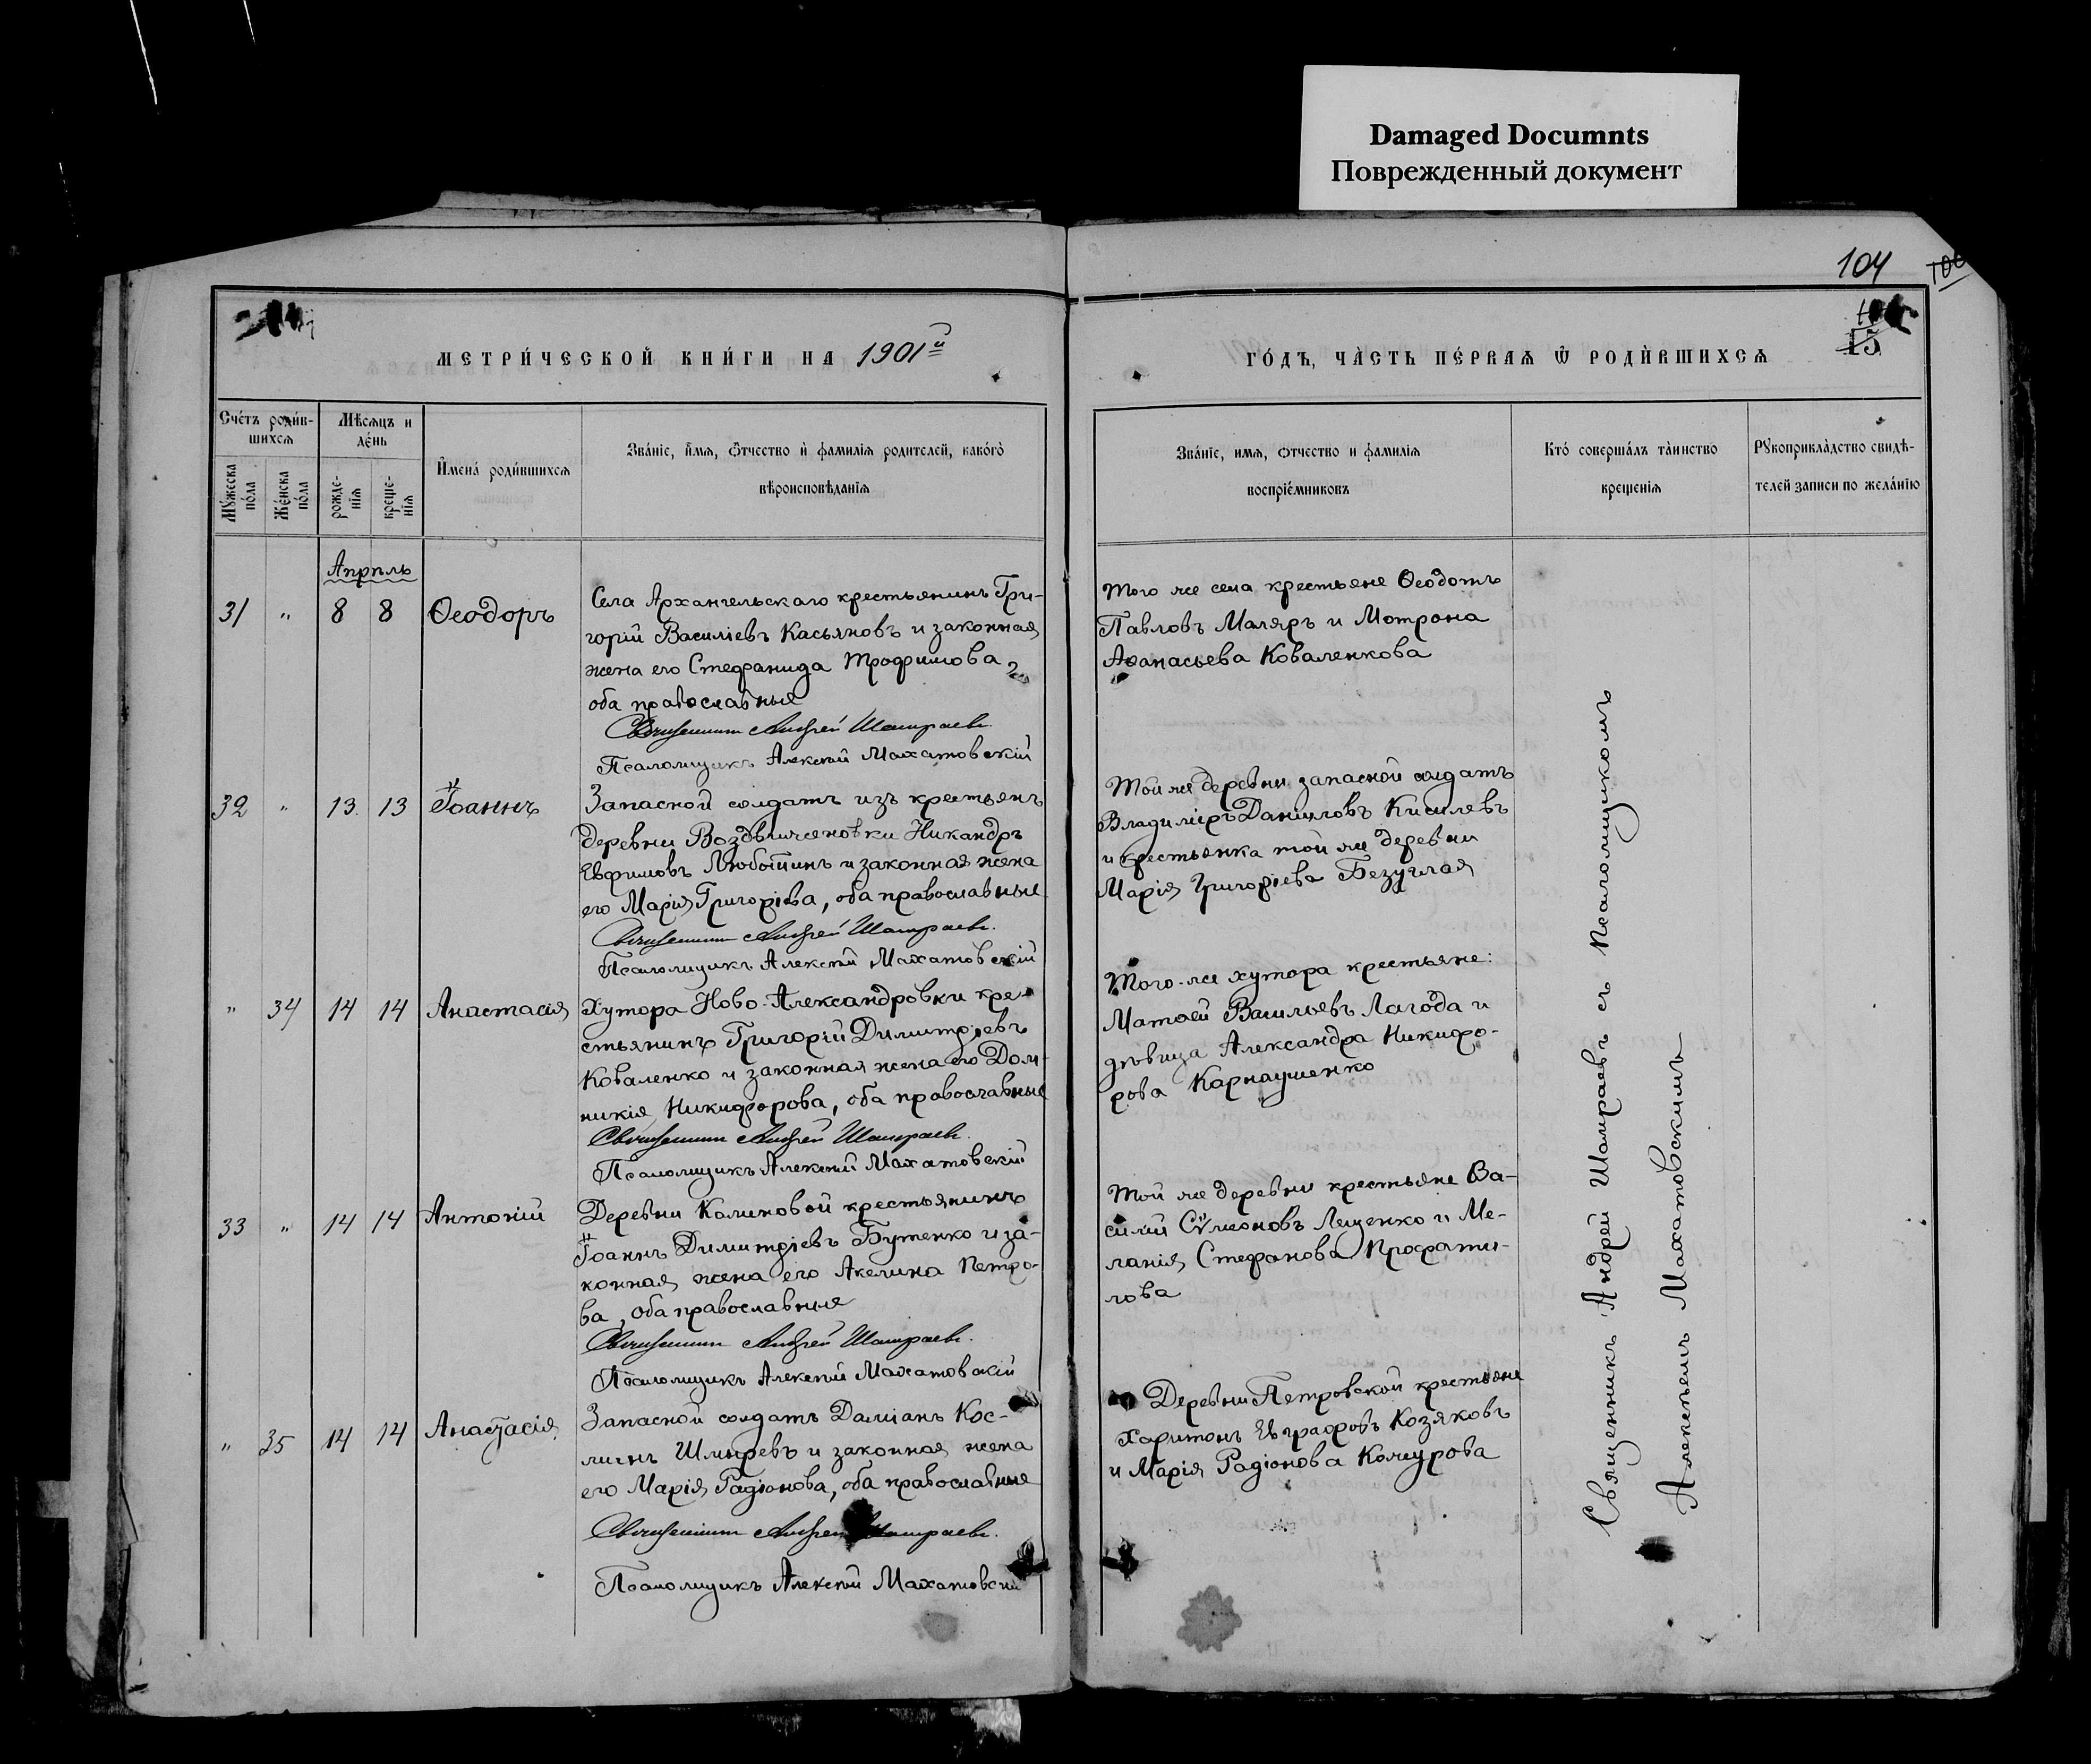 Damaged Documnts
Поврежденный документ
104
100
15
МЕТРИ́ЧЕСКОЙ КНИ́ГИ НА 1901й
ГО́ДЪ, ЧА̀СТЬ ПЕ́РВАѦ Ѿ РОДИ́ВШИХСѦ
Сче́тъ роди́в-
шихсѧ
Мѣ́сѧцъ и
де́нь
Мꙋ́жеска
по́ла
Же́нска
по́ла
рожде-
нїѧ
креще-
нїѧ
И҆мена̀ роди́вшихсѧ
Зва́нїе, и҆́мѧ, ѻ҆́тчество и҆ фамилїѧ родителей, како́гѡ
вѣроисповѣ́данїѧ
Зва́нїе, имѧ, ѻтчество и фамилїѧ
воспрїе́мниковъ
Кто́ соверша́лъ та̀инство
крещенїѧ
Рꙋкоприкла̀дство свидѣ́-
телей записи по жела́нїю
Апрѣль
31 " 8 8 Ѳеодоръ
Села Архангельскаго крестьянинъ Гри-
горій Василіевъ Касьяновъ и законная
жена его Стефанида Трофимова,
оба православные
Священникъ Андрей Шамраевъ.
Псаломщикъ Алексѣй Махатовскій
Того же села крестьяне Ѳеодотъ
Павловъ Маляръ и Мотрона
Аѳанасьева Коваленкова
32 " 13 13 Іоаннъ
Запасной солдатъ изъ крестьянъ
деревни Воздвиженовки Никандръ
Евфимовъ Любопинъ и законная жена
его Марія Григоріева, оба православные
Священникъ Андрей Шамраевъ.
Псаломщикъ Алексѣй Махатовскій
Той же деревни запасной солдатъ
Владиміръ Даніиловъ Киселевъ
и крестьянка той же деревни
Марія Григоріева Безуглая
" 34 14 14 Анастасія
Хутора Ново-Александровки кре-
стьянинъ Григорій Димитріевъ
Коваленко и законная жена его Дом-
никія Никифорова, оба православные
Священникъ Андрей Шамраевъ.
Псаломщикъ Алексѣй Махатовскій
Того-же хутора крестьяне:
Матѳей Васильевъ Лагода и
дѣвица Александра Никифо-
рова Карнаушенко
33 " 14 14 Антоній
Деревни Калиновой крестьянинъ
Іоаннъ Димитріевъ Бутенко и за-
конная жена его Акелина Петро-
ва, оба православные
Священникъ Андрей Шамраевъ.
Псаломщикъ Алексѣй Махатовскій
Той же деревни крестьяне Ва-
силій Сѵмеоновъ Лещенко и Ме-
ланія Стефанова Профати-
лова
" 35 14 14 Анастасія
Запасной солдатъ Даміанъ Кос-
минъ Шмыревъ и законная жена
его Марія Радіонова, оба православные
Священникъ Андрей Шамраевъ.
Псаломщикъ Алексѣй Махатовскій
Деревни Петровской крестьяне
Харитонъ Евграфовъ Козяковъ
и Марія Радіонова Кочурова
Священникъ Андрей Шамраевъ съ Псаломщикомъ
Алексѣемъ Махатовскимъ